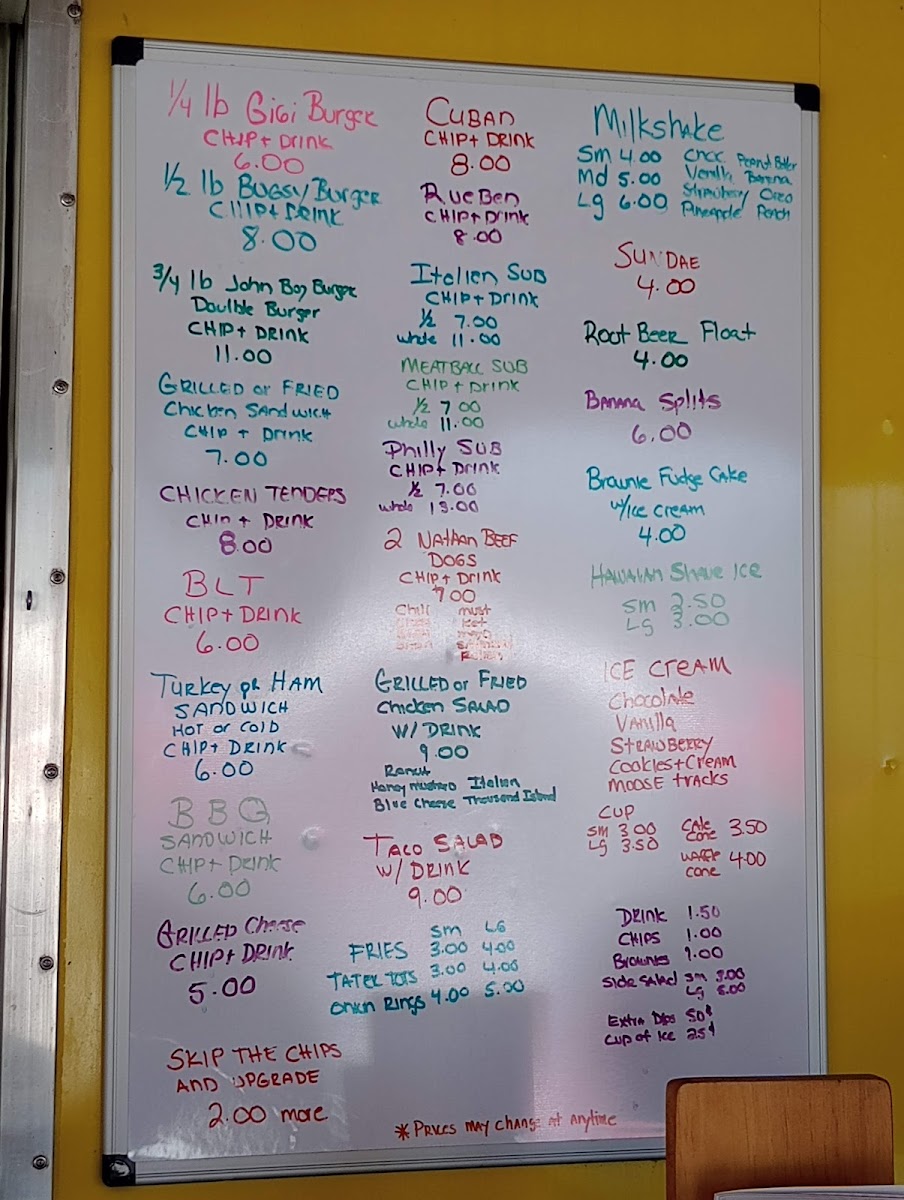 1/4 lb Gigi Burger
CHIP + Drink
6.00
1/2 lb BUGSY Burger
CHIP + Drink
8.00
3/4 lb John Boy Burger
Double Burger
CHIP + DRINK
11.00
GRILLED or FRIED
Chicken SANDWICH
CHIP + Drink
7.00
CHICKEN TENDERS
CHIP + DRINK
8.00
BLT
CHIP + DRINK
6.00
TURKEY OR HAM
SANDWICH
HOT or COLD
CHIP + DRINK
6.00
BBQ
SANDWICH
CHIP + Drink
6.00
GRILLED Cheese
CHIP + DRINK
5.00
SKIP THE CHIPS
AND UPGRADE
2.00 more
CUBAN
CHIP + DRINK
8.00
RueBen
CHIP + DRINK
8.00
Italien SUB
CHIP + Drink
1/2 7.00
whole 11.00
MEATBALL SUB
CHIP + Drink
1/2 7.00
whole 11.00
Philly SUB
CHIP + Drink
1/2 7.00
whole
2 NATHAN BEEF
DOGS
CHIP + Drink
7.00
Chili must
ket
mayo
Relish
GRILLED or FRIED
Chicken SALAD
W/ DRINK
9.00
Ranch
Honey mustard Italien
Blue Cheese Thousand Island
TACO SALAD
W/ DRINK
9.00
Sm LG
FRIES 3.00 4.00
TATER TOTS 3.00 4.00
Onion Rings 4.00 5.00
*PRICES MAY CHANGE at anytime
Milkshake
Sm 4.00 Choc Peanut Butter
Md 5.00 Vanilla Banana
Lg 6.00 Strawberry Oreo
Pineapple Peach
SUNDAE
4.00
Root Beer Float
4.00
BANANA Splits
6.00
Brownie Fudge Cake
w/Ice cream
4.00
HAWAIIAN Shave ICE
Sm 2.50
Lg 3.00
ICE CREAM
Chocolate
VANILLA
STRAWBERRY
COOKIES + CREAM
MOOSE TRACKS
CUP
Sm 3.00
Lg 3.50
CAKE
CONE 3.50
WAFFLE
CONE 4.00
DRINK 1.50
CHIPS 1.00
Brownies
Side Salad Sm
LG
Extra Dips 50¢
Cup of Ice 25¢